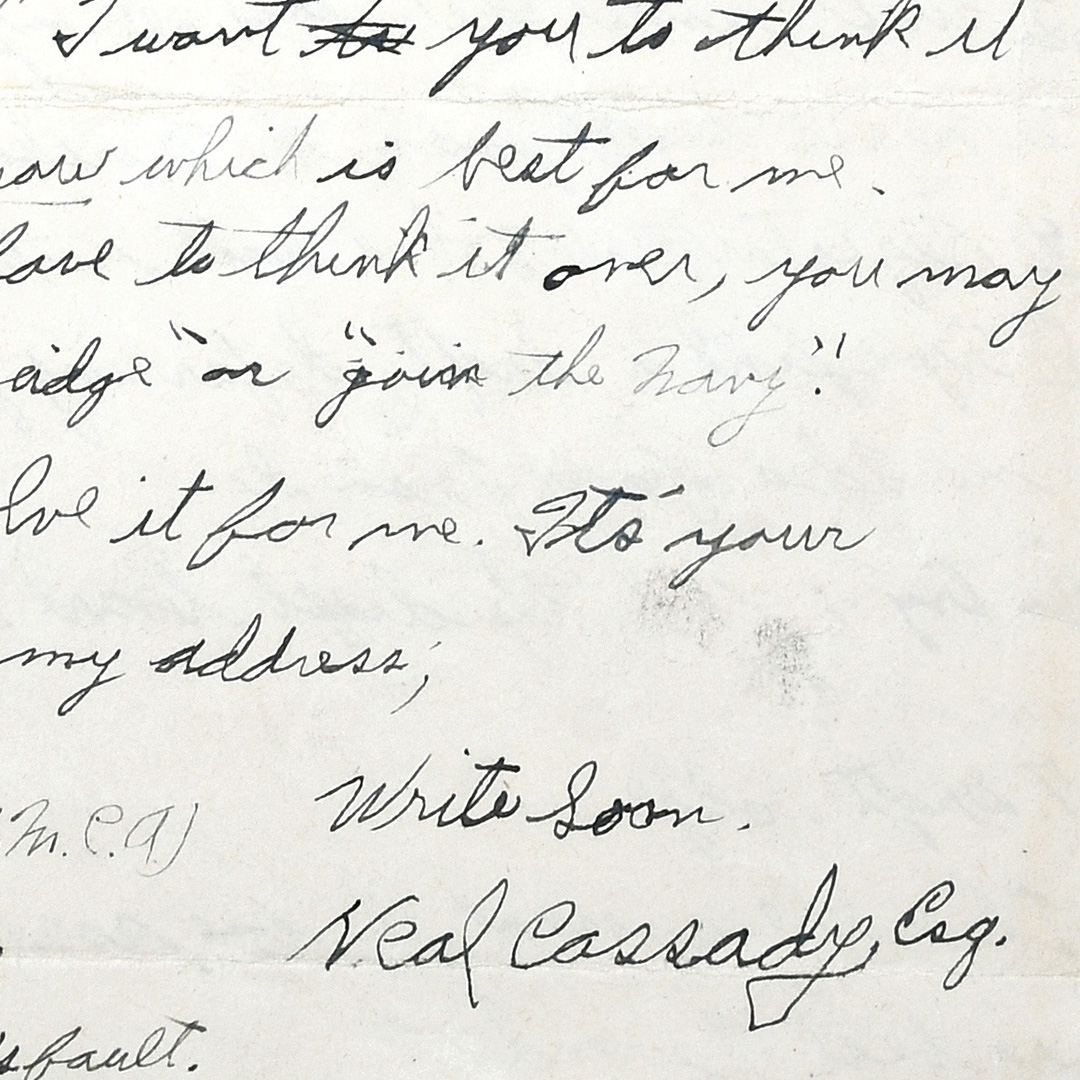 I want to you to think it
which is best for me.
have to think it over, you may
or "join the Navy".
it for me. It's your
my address;
Write Soon.
M.C.A)
Neal Cassady, Esq.
fault.